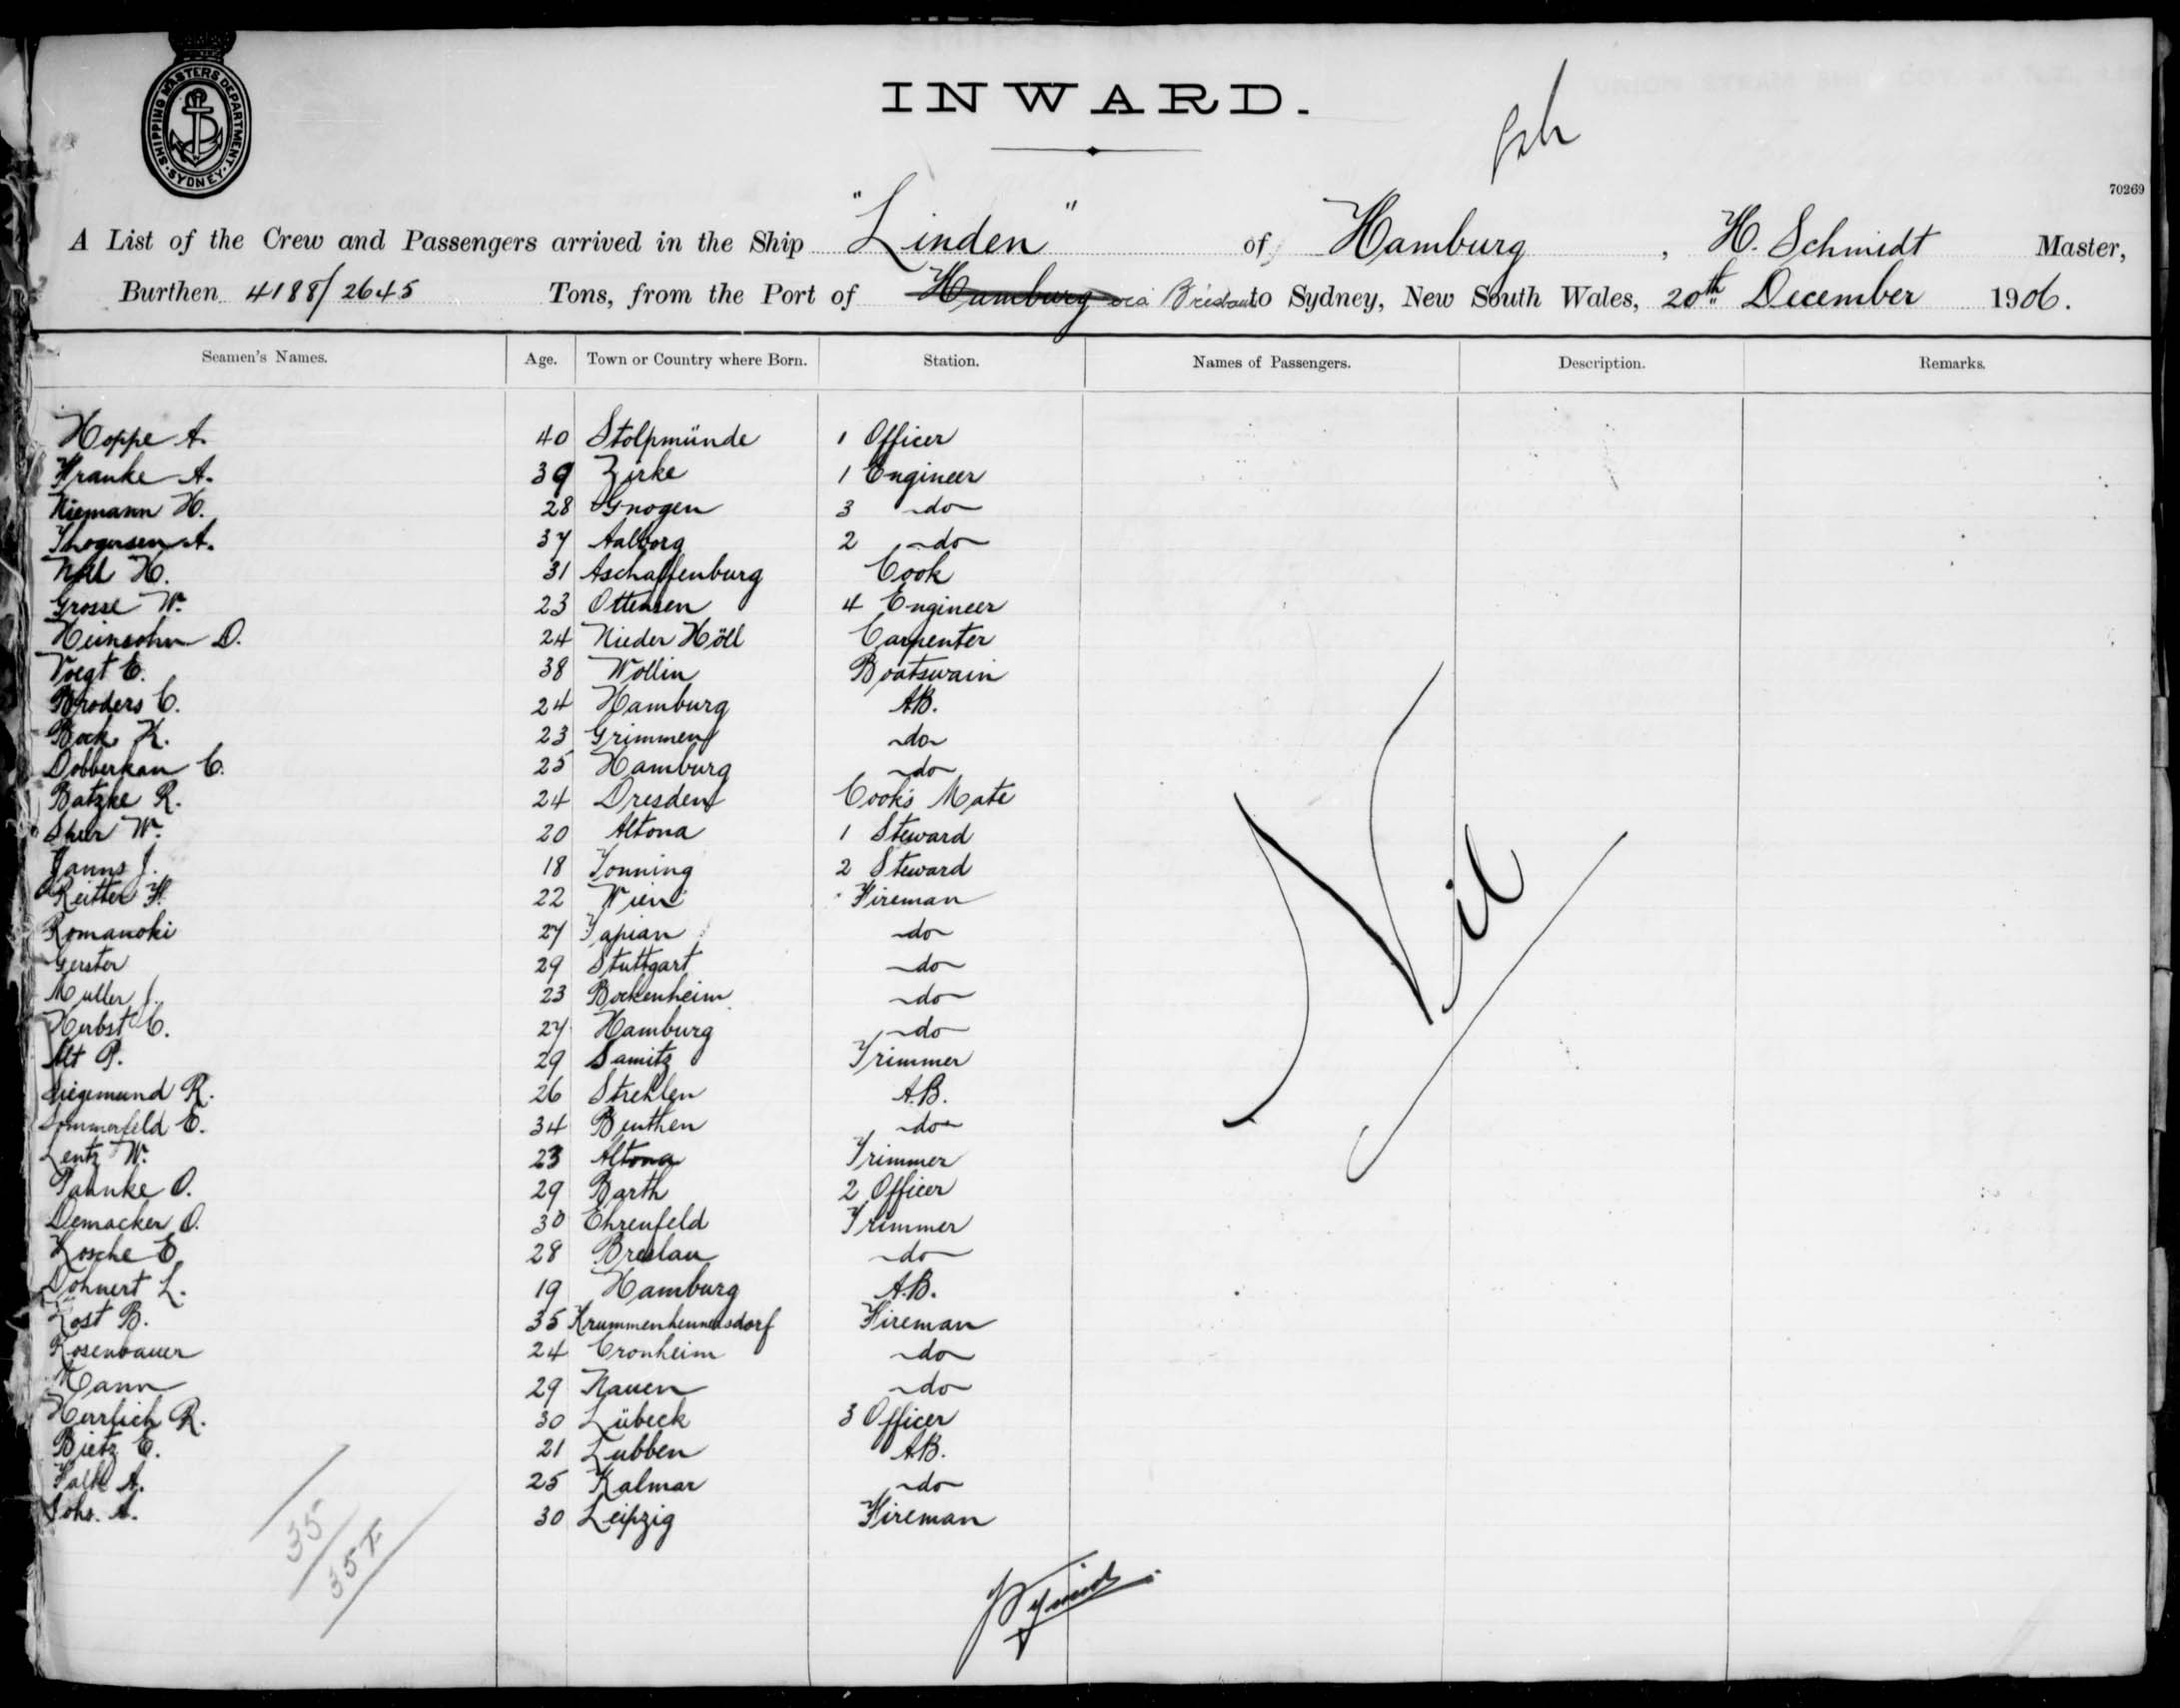 SHIPPING MASTERS DEPARTMENT. SYDNEY.
INWARD.
70269
A List of the Crew and Passengers arrived in the Ship "Linden" of Hamburg, H. Schmidt Master,
Burthen 4188/2645 Tons, from the Port of Hamburg via to Sydney, New South Wales, 20th December 1906.
Seamen's Names. Age. Town or Country where Born. Station. Names of Passengers. Description. Remarks.
Hoppe A. 40 Stolpmünde 1 Officer
Franke A. 39 Zirke 1 Engineer
Niemann H. 28 Gnogen 3 do
Thogersen A. 37 Aalborg 2 do
Noll H. 31 Aschaffenburg Cook
Grosse W. 23 Ottensen 4 Engineer
Heinsohn D. 24 Nieder Höll Carpenter
Voegt E. 38 Wollin Boatswain
Broders C. 24 Hamburg AB.
Bock K. 23 Grimmen do
Dobberkau C. 25 Hamburg do
Batzke R. 24 Dresden Cook's Mate
W. 20 Altona 1 Steward
Janns J. 18 Tonning 2 Steward
Reitter F. 22 Wien Fireman
Romanoki 27 Tapian do
Gerster 29 Stuttgart do
Muller J. 23 Bockenheim do
Herbst C. 27 Hamburg do
Alt P. 29 Samitz Trimmer
Siegemund R. 26 Strehlen A.B.
Sommerfeld E. 34 Beuthen do
Lentz W. 23 Altona Trimmer
Pahnke O. 29 Barth 2 Officer
Demacker O. 30 Ehrenfeld Trimmer
Kosche E. 28 Breslau do
Dohnert L. 19 Hamburg A.B.
Kost B. 35 Krummenhennersdorf Fireman
Rosenbauer 24 Cronheim do
Mann 29 Nauen do
Herrlich R. 30 Lübeck 3 Officer
Bietz E. 21 Lubben AB.
Falk A. 25 Kalmar do
A. 30 Leipzig Fireman
Nil
35
35 F